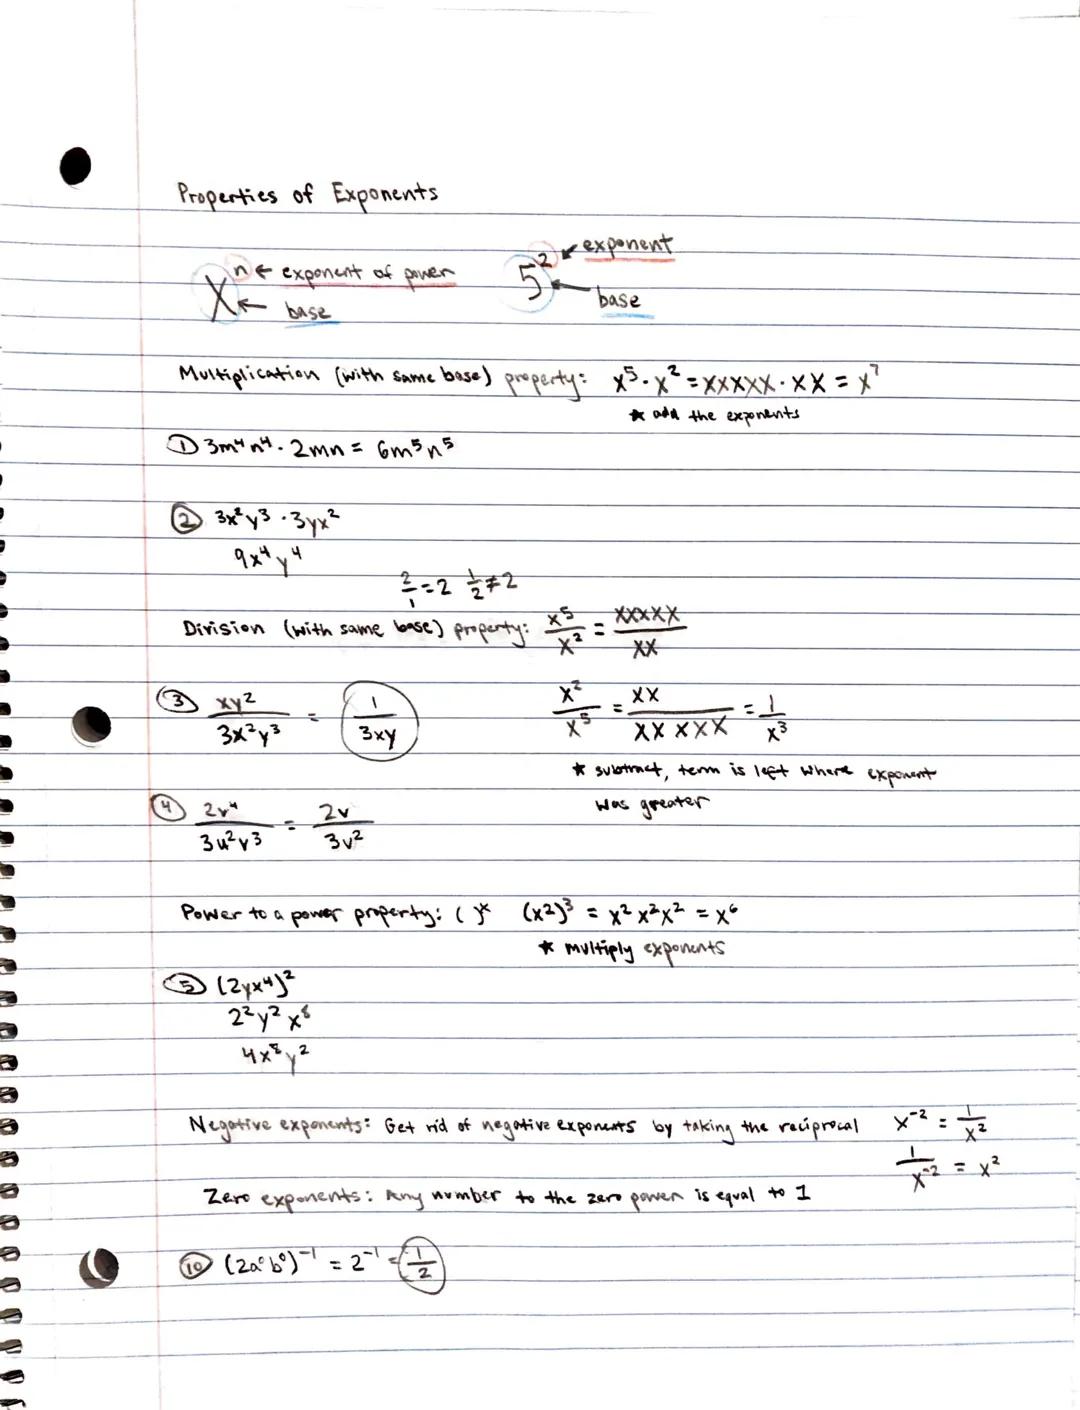 Properties of Exponents
xⁿ ← exponent of power
← base
5² ← exponent
← base
Multiplication (with same base) property: x⁵ · x² = xxxxx · xx = x⁷
* add the exponents
① 3m⁴n⁴ · 2mn = 6m⁵n⁵
② 3x²y³ · 3yx²
9x⁴y⁴
2/1 = 2 1/2 ≠ 2
Division (with same base) property: x⁵/x² = xxxxx/xx
③ xy²/3x²y³ = 1/3xy
x²/x⁵ = xx/xxxxx = 1/x³
* subtract, term is left where exponent
was greater
④ 2v⁴/3u²v³ = 2v/3v²
Power to a power property: ( )ˣ (x²)³ = x²x²x² = x⁶
* multiply exponents
⑤ (2yx⁴)²
2²y²x⁸
4x⁸y²
Negative exponents: Get rid of negative exponents by taking the reciprocal x⁻² = 1/x²
1/x⁻² = x²
Zero exponents: Any number to the zero power is equal to 1
⑩ (2a⁰b⁰)⁻¹ = 2⁻¹ = 1/2